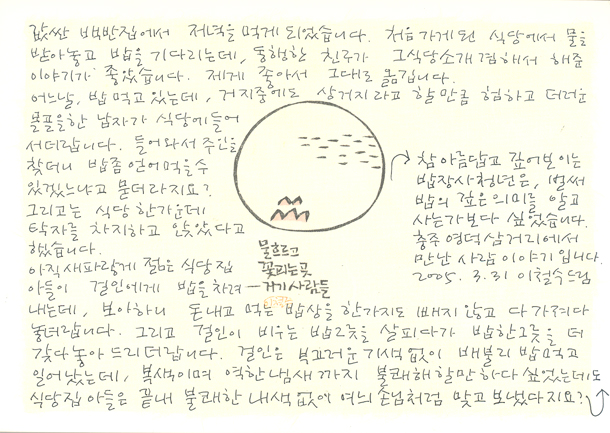 값싼 백반집에서 저녁을 먹게 되었습니다. 처음 가게된 식당에서 물을
받아놓고 밥을 기다리는데, 동행한 친구가 그식당소개 겸해서 해준
이야기가 좋았습니다. 제게 좋아서 그대로 옮깁니다.
어느날, 밥먹고 있는데, 거지중에도 상거지라고 할 만큼 험하고 더러운
몰골을한 남자가 식당에 들어
서더랍니다. 들어와서 주인을
찾더니 밥좀 얻어먹을 수
있겠느냐고 묻더라지요?
그리고는 식당 한가운데
탁자를 차지하고 앉았다고
했습니다.
아직새파랗게 젊은 식당집
아들이 걸인에게 밥을 차려
내는데, 보아하니 돈내고 먹는 밥상을 한가지도 빠지 않고 다 가져다
놓더랍니다. 그리고 걸인이 비우는 밥그릇을 살피다가 밥한그릇을 더
갖다놓아 드리더랍니다. 걸인은 부끄러운 기색 없이 배불리 밥먹고
일어났는데, 복색이며 역한냄새까지 불쾌해 할만하다 싶었는데도
식당집 아들은 끝내 불쾌한 내색 없이 여느 손님처럼 맞고 보냈다지요?
참 아름답고 깊어보이는
밥장사 청년은, 벌써
밥의 깊은 의미를 알고
사는가보다 싶었습니다.
충주 연덕삼거리에서
만난 사람 이야기입니다.
2005. 3. 31 이철수드림
물흐르고
꽃피는곳
거기사람들